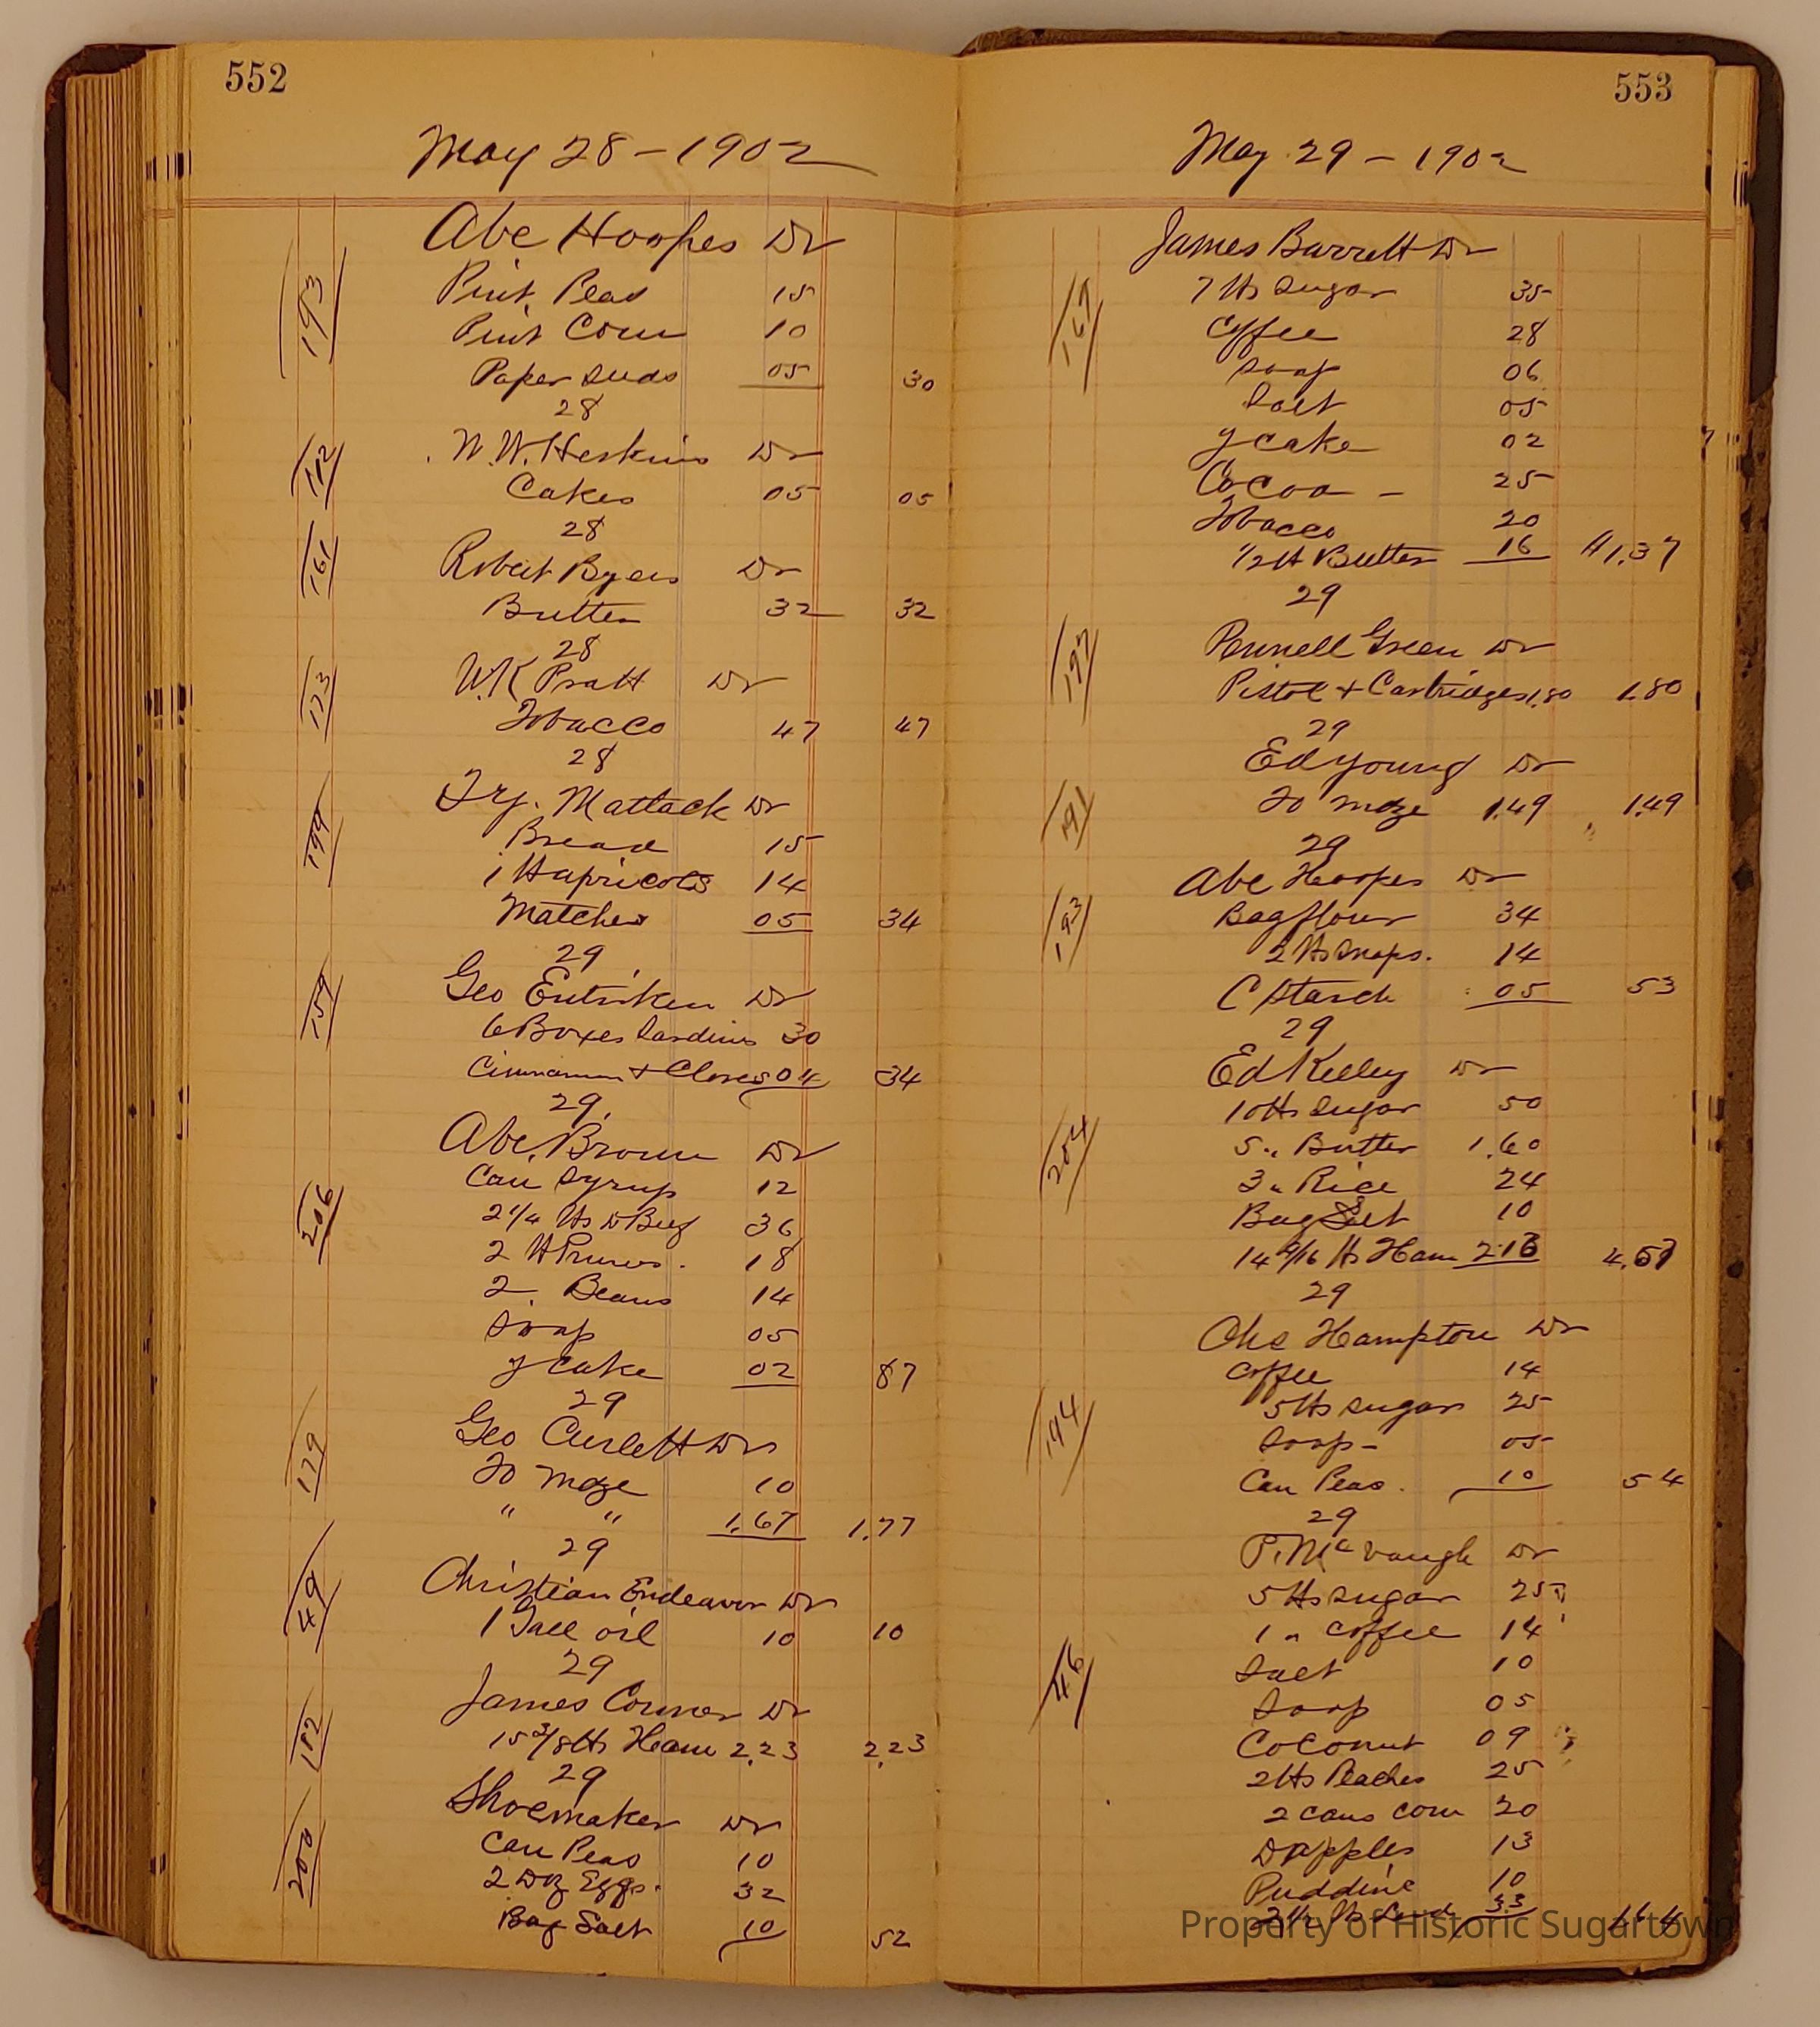 552
May 28 - 1902
Abe Hoopes Dr
193
Pint Peas 15
Pint Corn 10
Paper seeds 05 30
28
112
N. W. Heskins Dr
Cakes 05 05
28
161
Robert Byers Dr
Butter 32 32
28
173
W.K Pratt Dr
Tobacco 47 47
28
Matlack Dr
199
Bread 15
1 lt apricots 14
Matches 05 34
29
159
Geo Entriken Dr
6 Boxes Sardins 30
Cinnamon + Cloves 04 34
29.
Abe. Brown Dr
Can Syrup 12
206
2 1/4 lts D Beef 36
2 lt Pruns. 18
2 " Beans 14
Soap 05
y cake 02 87
29
Geo Curlett Dr
179
To mdze 10
" " 1.67 1.77
29
49
Christian Endeavor Dr
1 Gall oil 10 10
29
182
James Connor Dr
15 3/8 lts Ham 2.23 2.23
29
200
Shoemaker Dr
Can Peas 10
2 Doz Eggs. 32
Bag Salt 10 52
553
May 29 - 1902
James Barrett Dr
167
7 lts sugar 35
Coffee 28
soap 06
Salt 05
y cake 02
Cocoa - 25
Tobacco 20
1/2 lt Butter 16 1.37
29
197
Pennell Green Dr
Pistol + Cartridges 1.80 1.80
29
Ed Young Dr
191
To mdze 1.49 1.49
29
193
Abe Hoopes Dr
Bag flour 34
2 lts snaps. 14
C Starch 05 53
29
Ed Kelley Dr
10 lts sugar 50
204
5 " Butter 1.60
3 " Rice 24
Bag Salt 10
lts Ham
29
Hampton Dr
Coffee 14
194
5 lts sugar 25
Soap - 05
Can Peas. 10 54
29
P. McVaugh Dr
5 lts sugar 25
1 " coffee 14
46
Salt 10
Soap 05
CoConut 09
2 lts Peaches 25
2 cans corn 20
D apples 13
Puddine 10
2 1/2 lb Lard 33
Property of Historic Sugartown